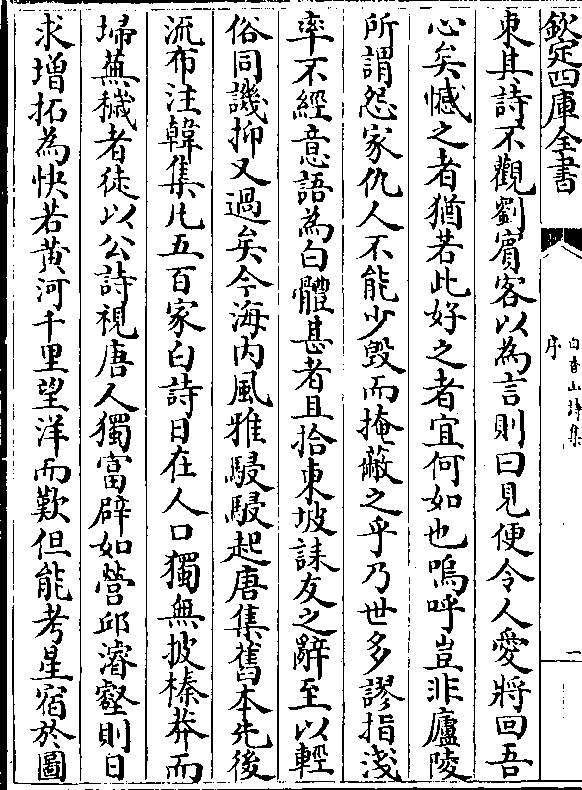 欽定四庫全書
白香山詩集
序
二
束其詩不觀劉賓客以為言則曰見便令人愛將回吾
心矣憾之者猶若此好之者宜何如也嗚呼豈非廬陵
所謂怨家仇人不能少毀而掩蔽之乎乃世多謬指淺
率不經意語為白體甚者且拾東坡誄友之辭至以輕
俗同譏抑又過矣今海内風雅駸駸起唐集舊本先後
流布注韓集凡五百家白詩日在人口獨無披榛莽而
埽蕪穢者徒以公詩視唐人獨富辟如營邱濬壑則日
求增拓為快若黄河千里望洋而歎但能考星宿於圖